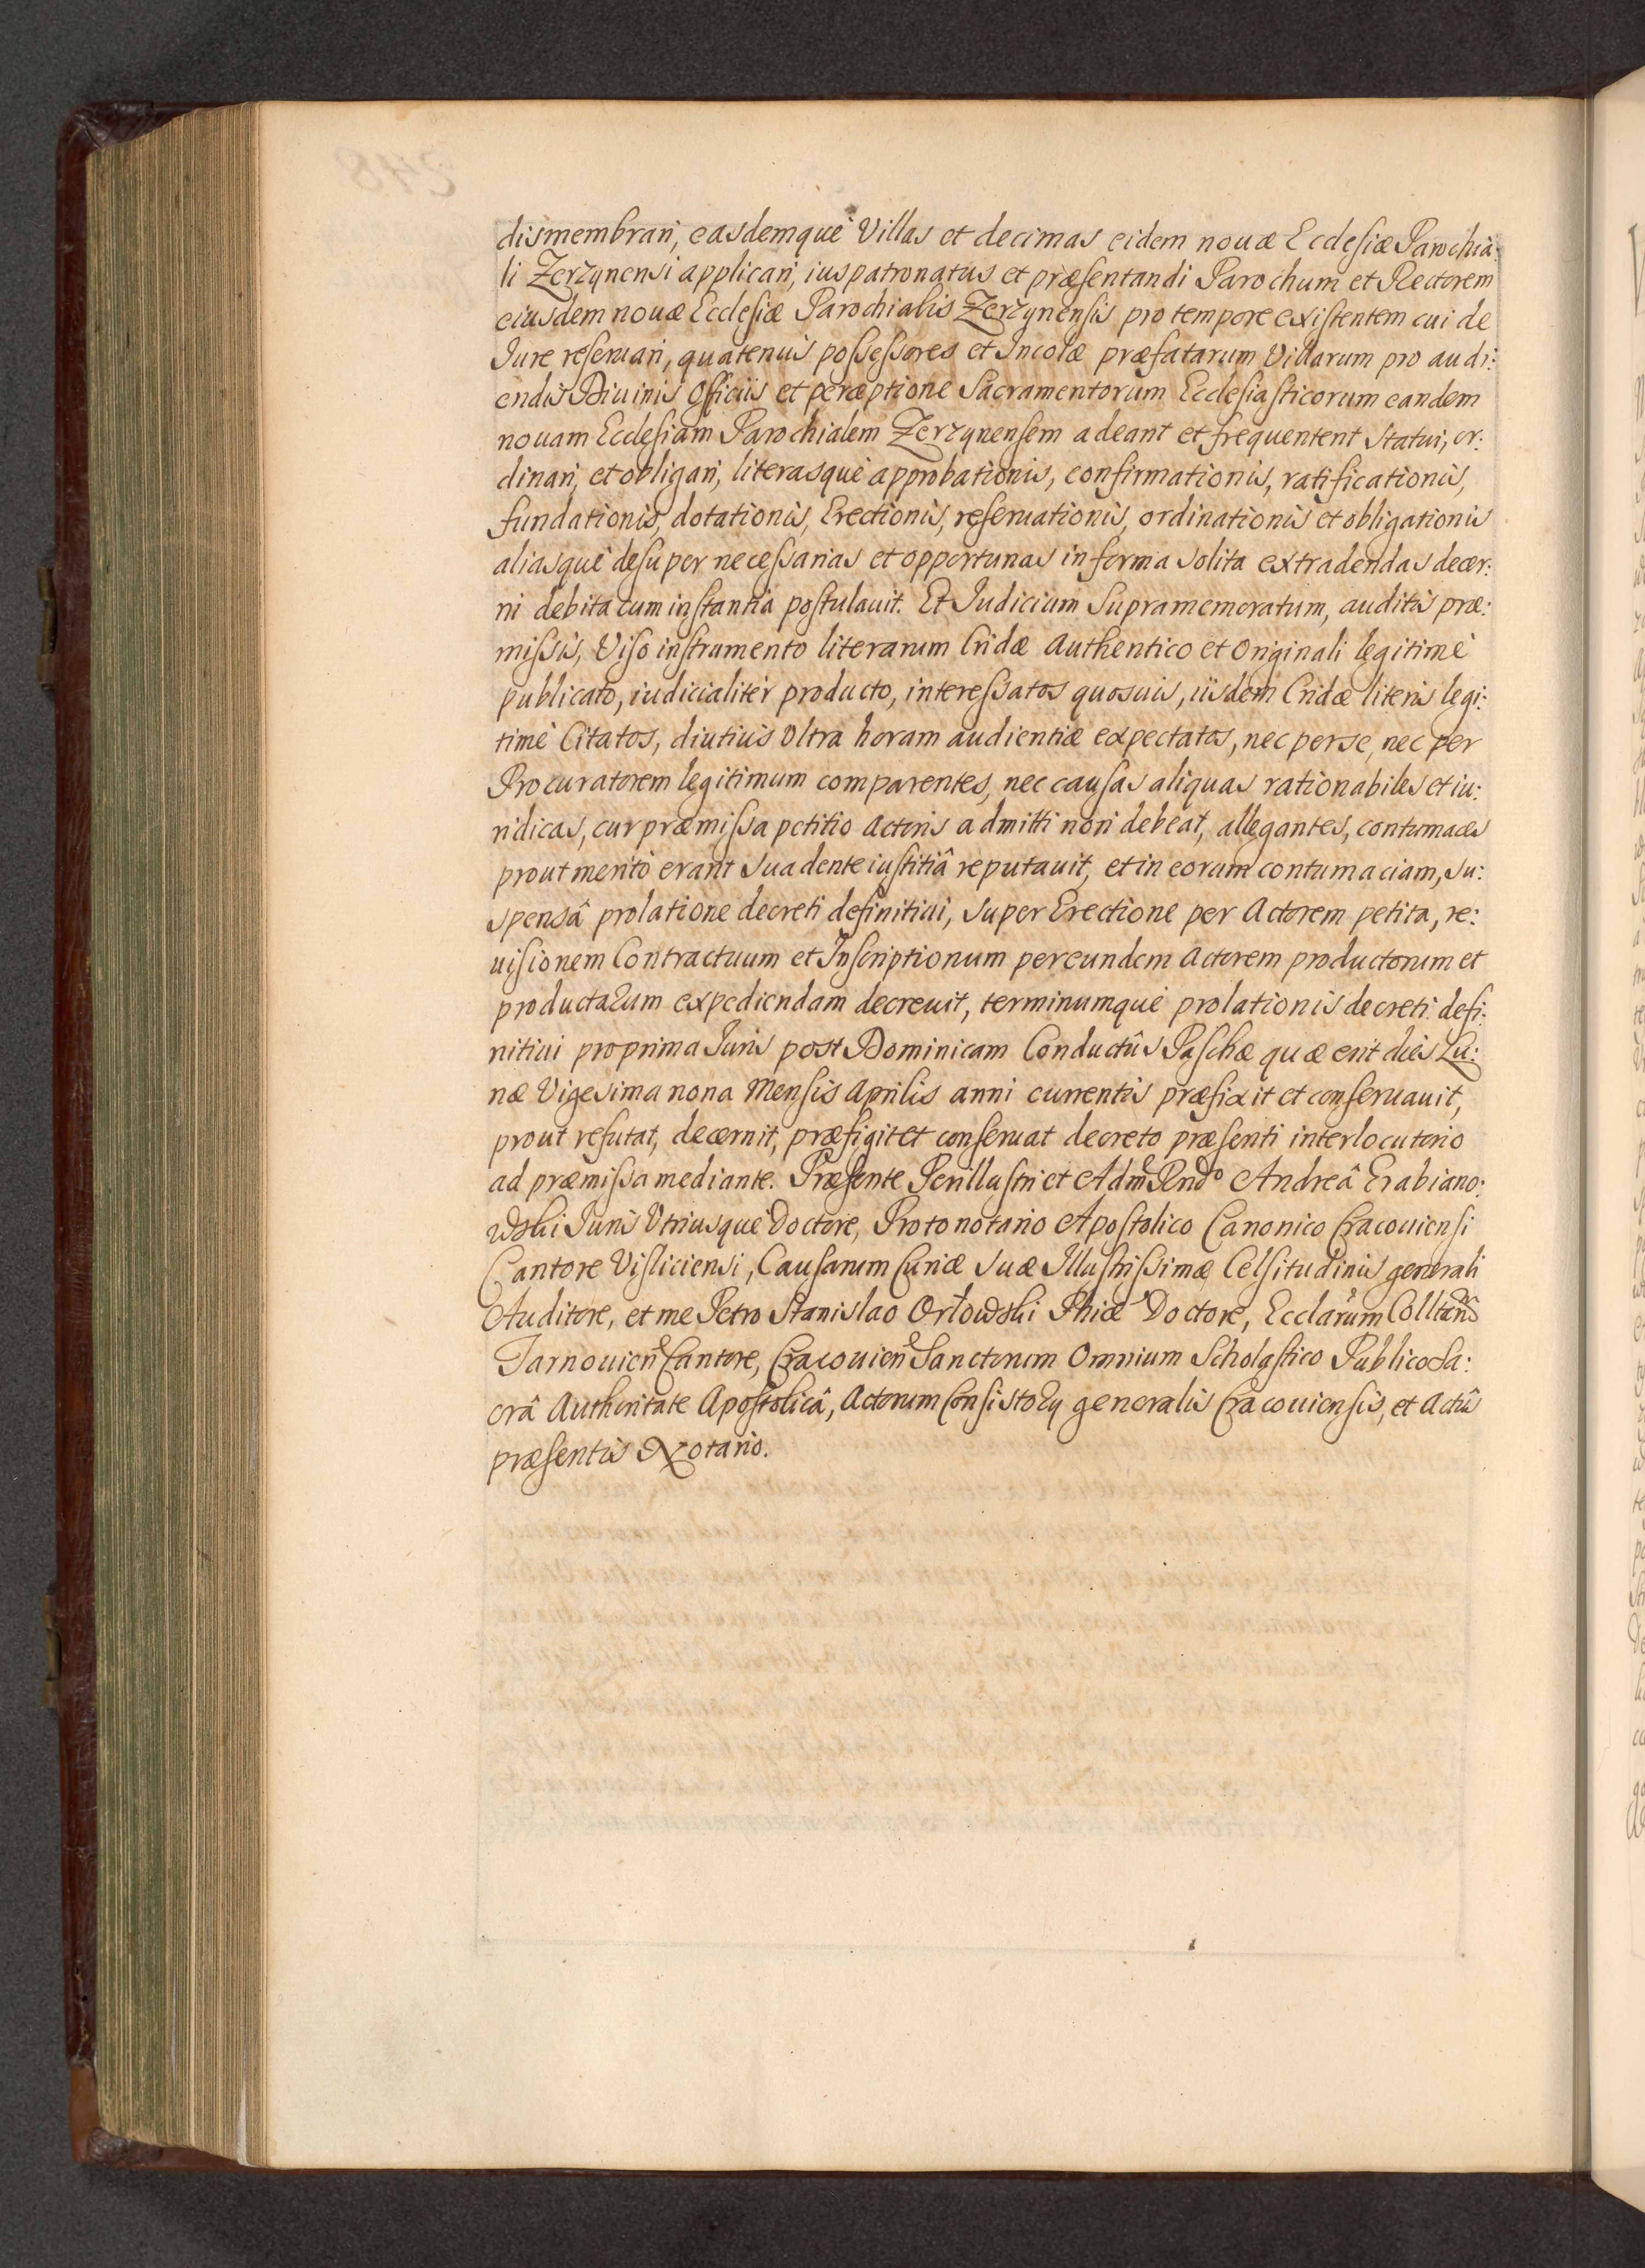 dismembrari, easdemquè Villas et decimas eidem nouæ Ecclesiæ Parochia:
li Zerzynensi applicari, ius patronatus et præsentandi Parochum et Rectorem
eiusdem nouæ Ecclesiæ Parochialis Zerzynensis pro tempore existentem cui de
Iure reseruari, quatenus possessores et Incolæ præfatarum Villarum pro audi:
endis Diuinis Officiis et perceptione Sacramentorum Ecclesiasticorum eandem
nouam Ecclesiam Parochialem Zerzynensem adeant et frequentent statui, or:
dinari, et obligari, literasquè approbationis, confirmationis, ratificationis,
fundationis, dotationis, Erectionis, reseruationis, ordinationis et obligationis
aliasquè desuper necessarias et opportunas in forma solita extradendas decer:
ni debita cum instantia postulauit. Et Iudicium Supramemoratum, auditis præ:
missis, Viso instrumento literarum Cridæ Authentico et Originali legitimè
publicato, iudicialitèr producto, interessatos quosuis, iisdem Cridæ literis legi:
timè Citatos, diutius Vltra horam audientiæ expectatos, nec per se, nec per
Procuratorem legitimum comparentes, nec causas aliquas rationabiles et iu:
ridicas, cur præmissa petitio Actoris admitti non debeat, allegantes, contumaces
prout meritò erant suadente iustitiâ reputauit, et in eorum contumaciam, su:
spensâ prolatione decreti definitiui, super Erectione per Actorem petita, re:
uisionem Contractuum et Inscriptionum per eundem Actorem productorum et
productarum expediendam decreuit, terminumquè prolationis decreti defi:
nitiui pro prima Iuris post Dominicam Conductûs Paschæ quæ erit dies Lu:
næ Vigesima nona Mensis Aprilis anni currentis præfixit et conseruauit,
prout refutat, decernit, præfigit et conseruat decreto præsenti interlocutorio
ad præmissa mediante. Præsente Perillustri et Admẽ Rndo Andreâ Grabiano:
wski Iuris Vtriusquè Doctore, Protonotario Apostolico Canonico Cracouiensi
Cantore Visliciensi, Causarum Curiæ suæ Illustrissimæ Celsitudinis generali
Auditore, et me Petro Stanislao Orłowski Phiæ Doctore, Ecclarum Colltarũ
Tarnouien Cantore, Cracouien Sanctorum Omnium Scholastico Publico Sa:
crâ Authoritate Apostolicâ, Actorum Consistorÿ generalis Cracouiensis, et Actûs
præsentis Notario.